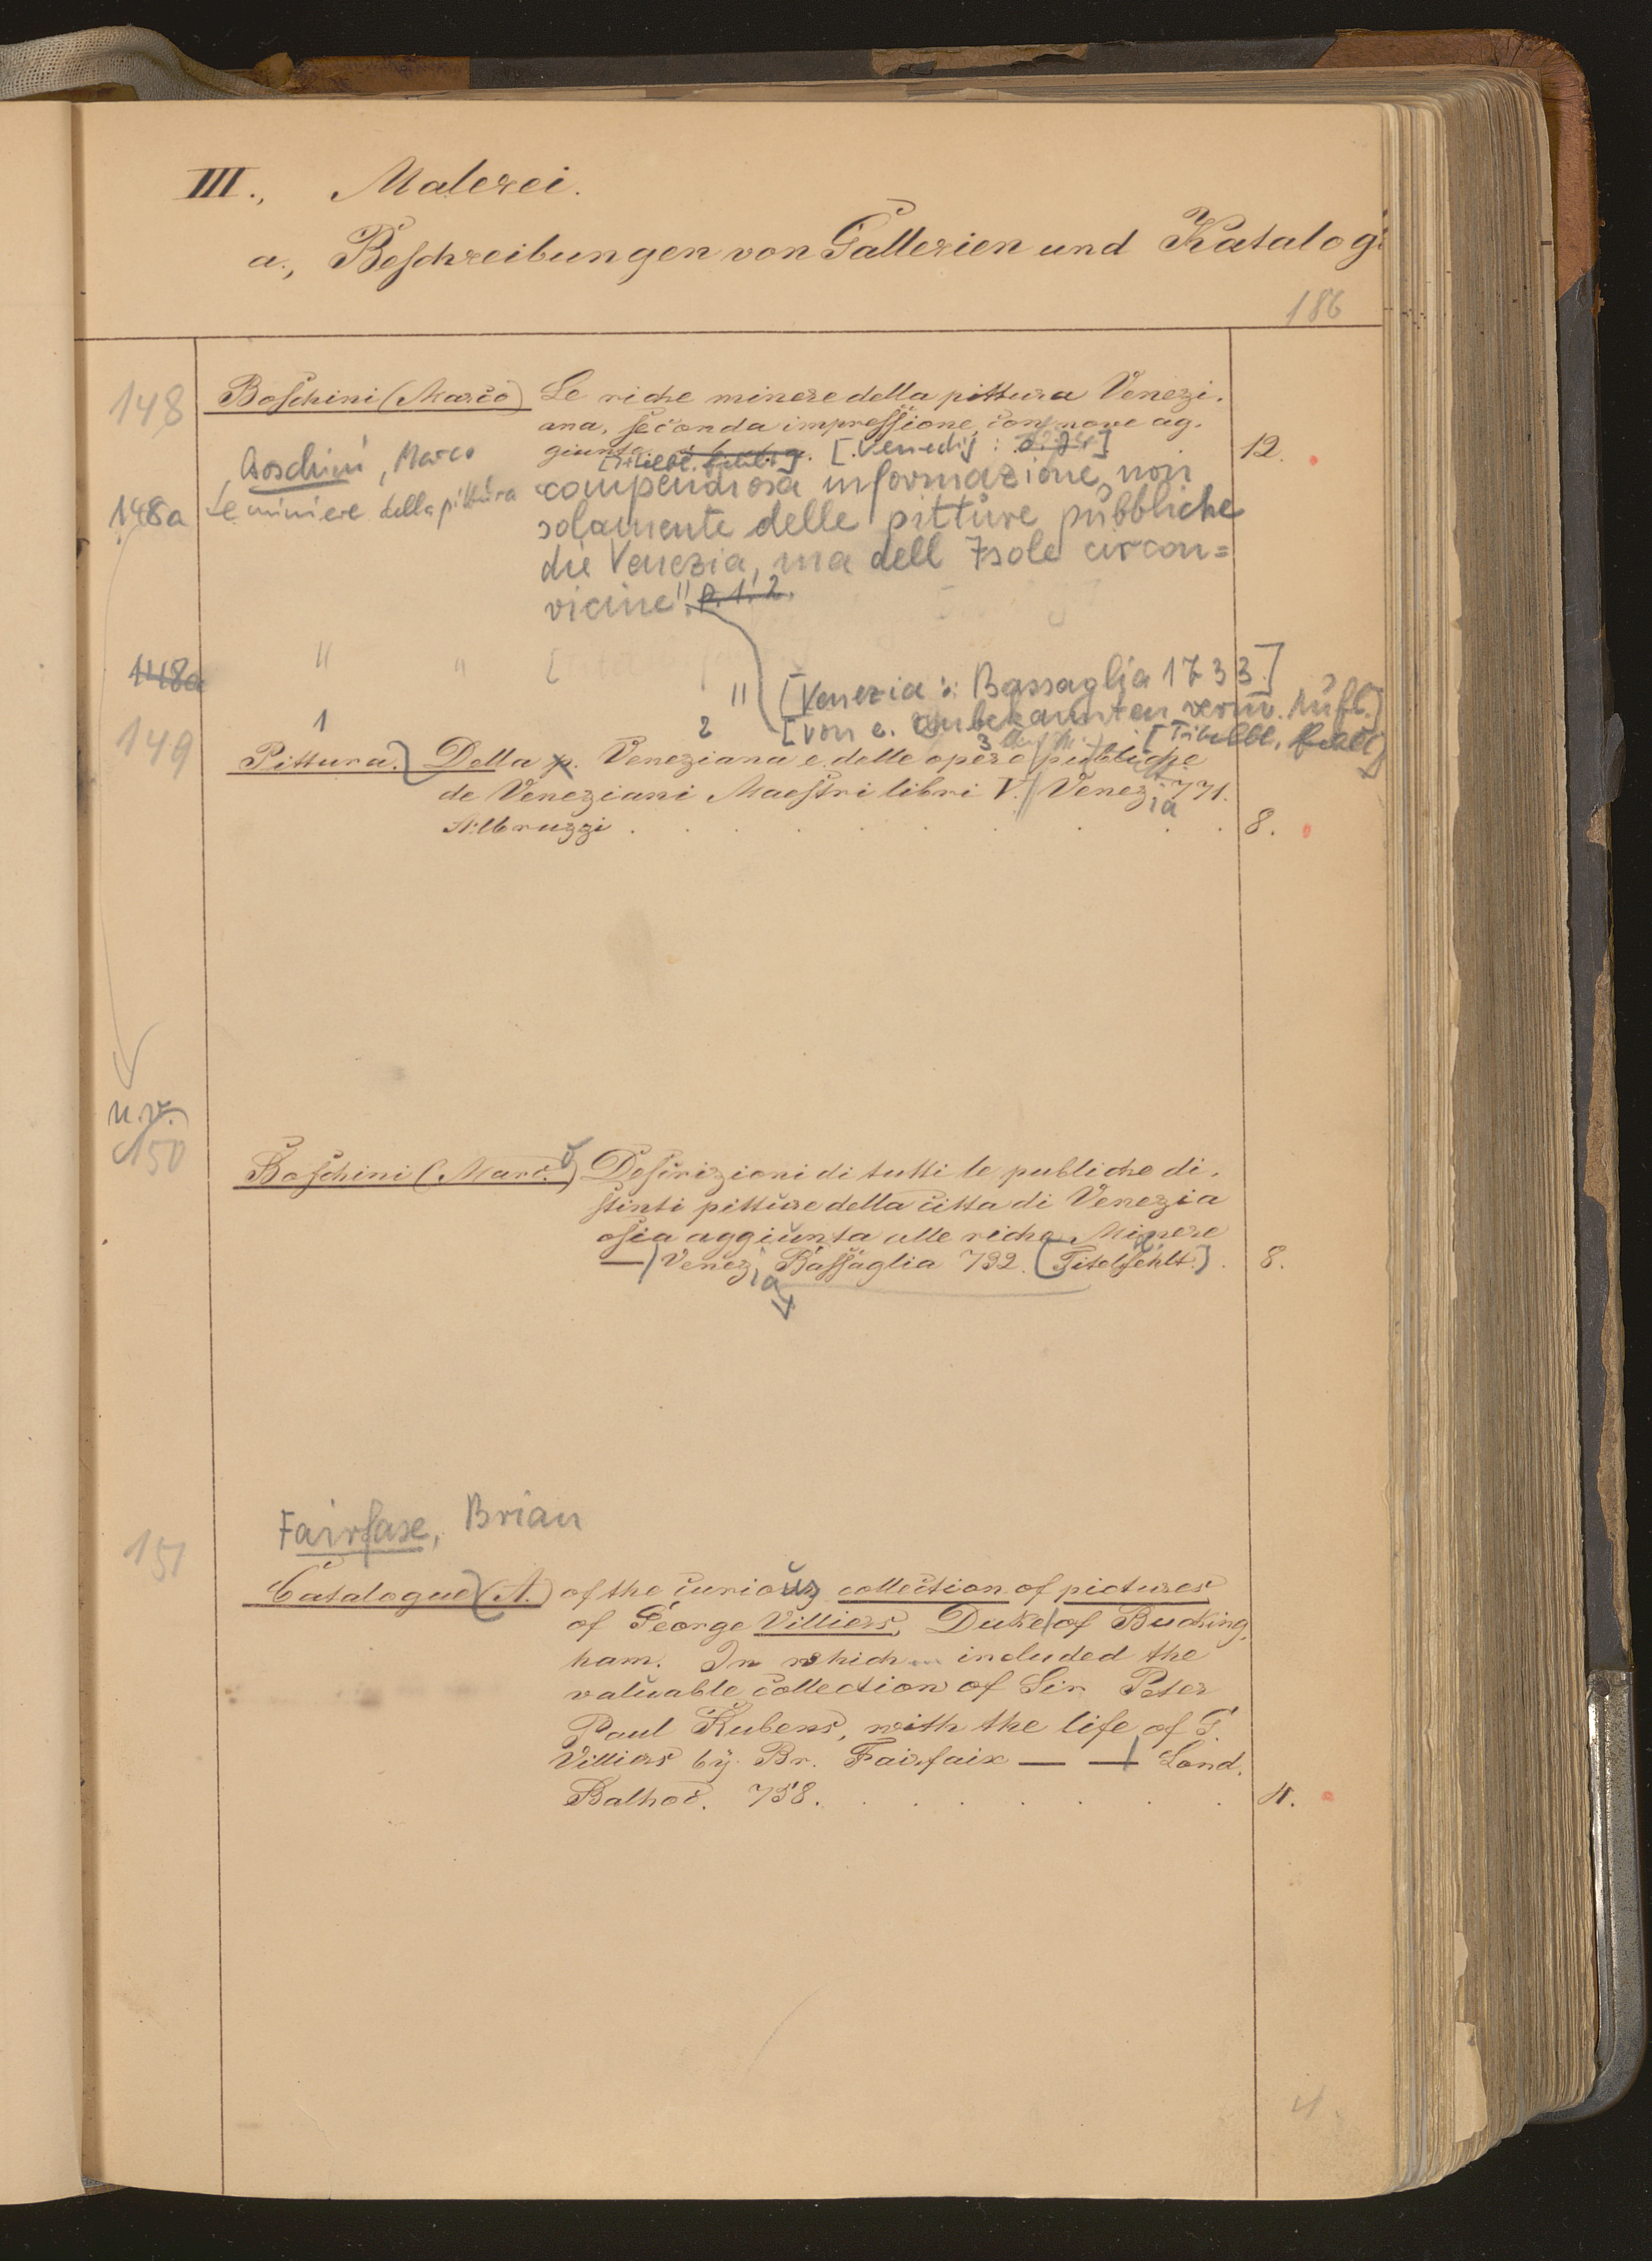 III., Malerei.
a., Beschreibungen von Gallerien und Katalog
186
148 Boschini (Marco) Le riche minere della pittura Venezi-
ana, seconda impressione, con nove ag-
giunte. [Venedig : 12.
Boschini, Marco
148a Le miniere della pittura
compendiosa informazione, non
solamente delle pitture pubbliche
die Venezia, ma dell Isole circon=
vicine". P. 1. 2.
148a " " [
" [Venezia: Bassaglia 1733.]
[von e. unbekannten verm. Aufl.]
1 2 3 [Titelbl. fehlt]
149 Pittura. Della p. Veneziana e delle opere publiche
de Veneziani Maestri libri V. Venezia 771.
Albruzzi . . . . . . . . 8.
n.v.
150 Boschini (Marco) Descrizioni di tutti le publiche di-
stinti pitture della citta di Venezia
osia aggiunta alle riche Minere
— Venezia Bassaglia 732. (Titel fehlt.) . 8.
Fairfaxe, Brian
151 Catalogue (A.) of the curious collection of pictures
of George Villiers, Duke of Bucking-
ham. In which included the
valuable collection of Sir Peter
Paul Rubens, with the life of G.
Villiers by Br. Fairfaix — — Lond.
Bathoe. 758. . . . . . . . 4.
4